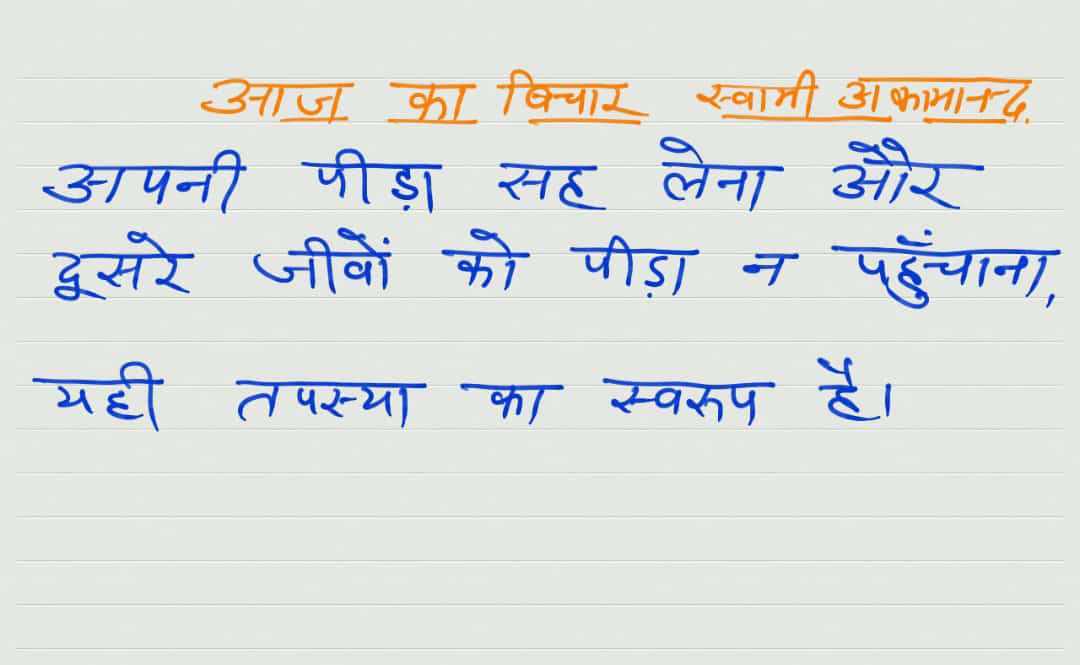 आज का विचार स्वामी अकामानन्द.
अपनी पीड़ा सह लेना और
दूसरे जीवों को पीड़ा न पहुँचाना,
यही तपस्या का स्वरुप है।